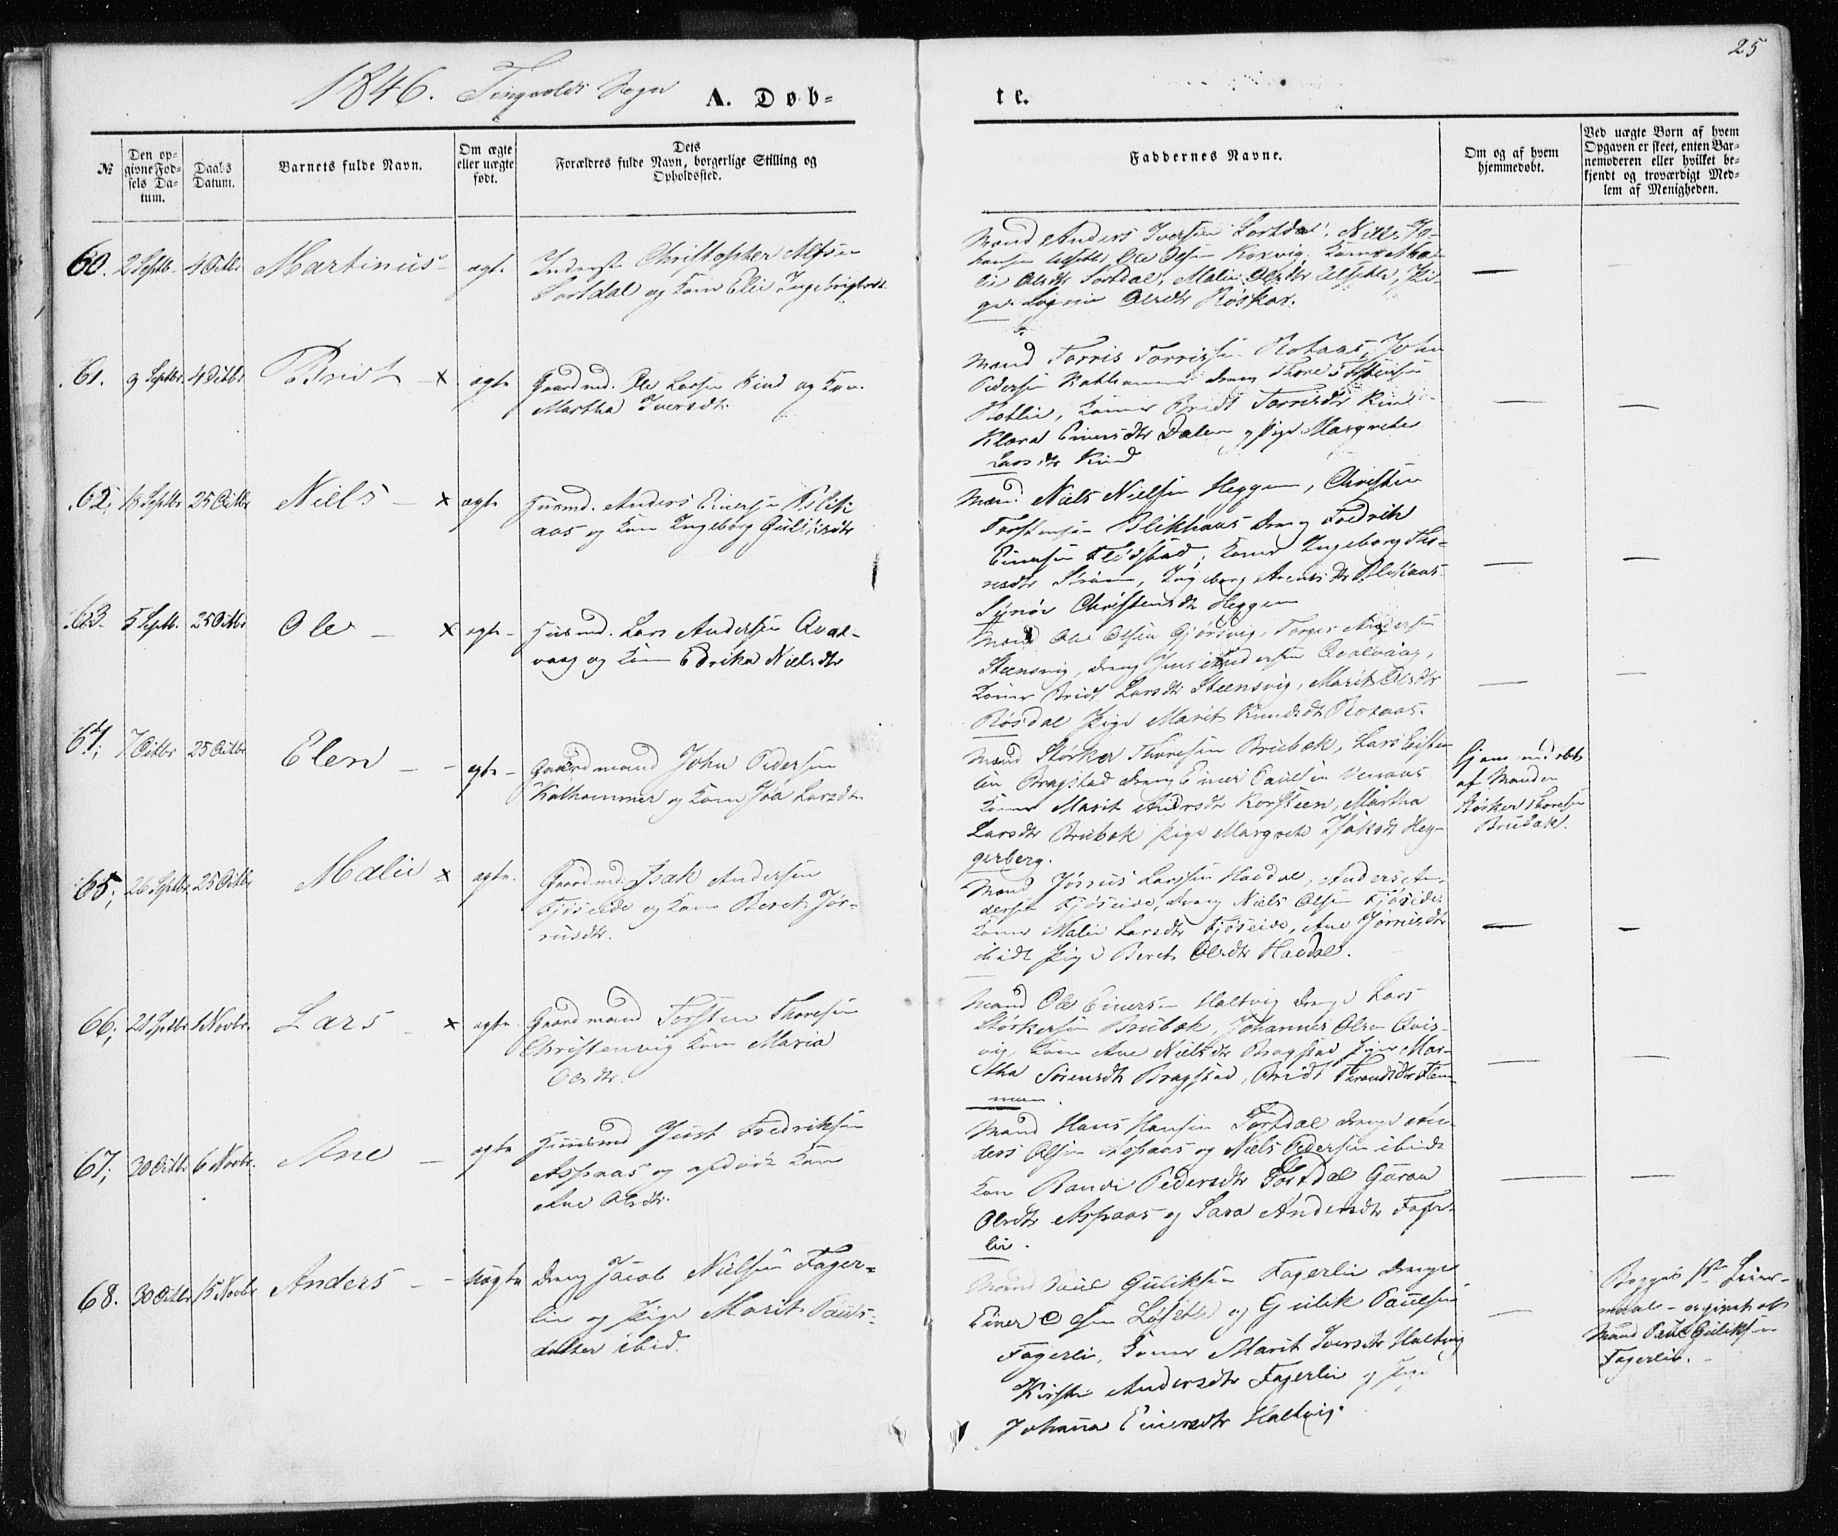 25
1846. Tingvolds Sogn A. Døb-
te.
№
Den op-
givne Fød-
sels Da-
tum.
Daabs
Datum.
Barnets fulde Navn.
Om ægte
eller uægte
født.
Dets
Forældres fulde Navn, borgerlige Stilling og
Opholdssted.
Faddernes Navne.
Om og af hvem
hjemmedøbt.
Ved uægte Børn af hvem
Opgaven er skeet, enten Bar-
nemoderen eller hvilket be-
kjendt og troværdigt Med-
lem af Menigheden.
60. 2 Septb. 4 Octbr Martinus - ægte
Inderst Christopher Alfsen
Sortdal og Kone Elie Ingebrigtsdt
Mand Anders Iversen Sortdal, Niels Jo-
hansen Ole Olsen Koxvig, Koner Ma-
lie Olsdtr Sortdal, Malie Olsdtr Pi-
ger Olsdtr Røskar.
61. 9 Septbr. 4 Octbr Bridt - x ægte
Gaardmd. Ole Larsen Rind og Kon.
Martha Iversdtr.
Mand Torris Torrisen Rotaas, John
Pedersen Kalhammer dreng Thore Torstensen
Rotlie, Koner Bridt Torrisdtr Rind
Klara Einersdtr Dalen og Pige Margrethe
Larsdtr Rind
62, 18 Septbr 25 Octbr Niels - x ægte
Huusmd. Anders Einersen Blik-
aas og Kone Ingeborg Gulliksdtr
Mand Niels Nielsen Heggem, Christen
Torstensen Blikhaas dreng Fredrik
Einersen Flødstad, Koner Ingeborg Tho-
resdtr Strøm, Ingeborg dtr Blikaas
Synøv Christensdtr Heggem
63. 5 Septb. 25 Octbr Ole - x ægte -
Huusmd. Lars Andersen Qval-
vaag og Kone Edrika Nielsdtr
Mand Ole Olsen Gjørsvig, Torger Andersen
Steensvig, dreng Jens Andersen Qvalvaag,
Koner Bridt Larsdtr Steensvig, Marit Olsdtr
Røsdal Pige Marit Knudsdtr Rotaas.
64; 7 Octbr 25 Octbr Elen - - ægte -
Gaardmand John Pedersen
Kalhammer og Kone Larsdtr
Mand Størker Thoresen Brubæk, Lars
Bragstad dreng Einer Paulsen
Koner Marit Andrsdtr Korsteen, Martha
Larsdtr Brubæk Pige Margrete Isaksdt Heg-
gerberg.
Hjemmedøbt
af Manden
Størker Thoresen
Brubæk.
65; 26 Septbr 25 Octbr Malie x ægte.
Gaardmd. Isak Andersen
Fjøseide og Kone Beret Jør-
rusdtr.
Mand Jørrus Larsen Havdal, Anders An-
dersen Fjøseide, dreng Niels Olsen Fjøseide
Koner Malie Larsdtr Fjøseide, Ane Jørrusdtr
ibidt Pige Beret Olsdtr Havdal.
66; 21 Septbr 1 Novbr. Lars - x ægte.
Gaardmand Torsten Thoresen
Christenvig Kone Maria
Olsdtr.
Mand Ole Einersen Holtvig drenge Lars
Størkersen Brubæk, Johannes Olsen Qvis-
vig, Kone Ane Nielsdtr Bragstad Piger Mar-
tha Sørensdtr Bragstad, Bridt Tronsdtr Flem-
men.
67; 30 Octbr 6 Novbr. Ane - ægte
Huusmd Just Fredriksen
Aspaas og Kone
Ane Olsdtr.
Mand Hans Hansen Torsdal drenge An-
ders Olsen Aspaas og Niels Pedersen ibidt
Kone Randi Pedersdtr Torsdal Guroe
Olsdtr Aspaas og Sara Andersdtr Fager-
lie.
68. 30 Octbr 15 Novbr Anders - - uægte
dreng Jacob Nielsen Fager-
lie og Pige Marit Pauls-
datter ibid.
Mand Paul Guliksen Fagerlie drenge
Einer Olsen Løseth og Gulik Paulsen
Fagerli, Koner Marit Iversdtr Holtvig
Kirsten Andersdtr Fagerlie og Pige
Johanna Einersdtr Holtvig.
Begges 1ste Leier-
maal - angivet af
Mand Paul Guliksen
Fagerlie.